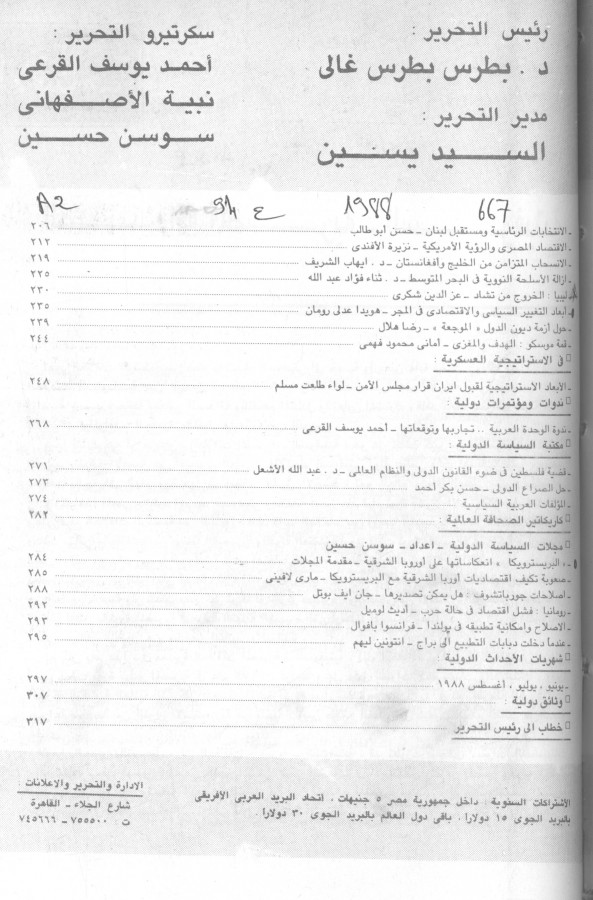 رئيس التحرير :
د . بطرس بطرس غالى
مدير التحرير :
السيد يسين
سكرتيرو التحرير :
أحمد يوسف القرعى
نبية الأصفهانى
سوسن حسين
A2 94 ع 1988 667
ـ الانتخابات الرئاسية ومستقبل لبنان ـ حسن أبو طالب ٢٠٦
ـ الاقتصاد المصرى والرؤية الأمريكية ـ نزيرة الأفندى ٢١٢
ـ الانسحاب المتزامن من الخليج وأفغانستان ـ د . ايهاب الشريف ٢١٩
ـ ازالة الأسلحة النووية فى البحر المتوسط ـ د . ثناء فؤاد عبد الله ٢٢٥
ـ ليبيا : الخروج من تشاد ـ عز الدين شكرى ٢٣٠
ـ أبعاد التغيير السياسى والاقتصادى فى المجر ـ هويدا عدلى رومان ٢٣٥
ـ حول أزمة ديون الدول « الموجعة » ـ رضا هلال ٢٣٩
ـ قمة موسكو : الهدف والمغزى ـ أمانى محمود فهمى ٢٤٤
□ فى الاستراتيجية العسكرية :
ـ الأبعاد الاستراتيجية لقبول ايران قرار مجلس الأمن ـ لواء طلعت مسلم ٢٤٨
□ ندوات ومؤتمرات دولية :
ـ ندوة الوحدة العربية .. تجاربها وتوقعاتها ـ أحمد يوسف القرعى ٢٦٨
□ مكتبة السياسة الدولية :
ـ قضية فلسطين فى ضوء القانون الدولى والنظام العالمى ـ د . عبد الله الأشعل ٢٧١
ـ حل الصراع الدولى ـ حسن بكر أحمد ٢٧٣
ـ المؤلفات العربية السياسية ٢٧٤
□ كاريكاتير الصحافة العالمية : ٢٨٢
□ مجلات السياسة الدولية ـ اعداد ـ سوسن حسين
ـ « البريسترويكا » انعكاساتها على أوروبا الشرقية ـ مقدمة المجلات ٢٨٤
ـ صعوبة تكيف اقتصاديات أوربا الشرقية مع البريسترويكا ـ مارى لافينى ٢٨٥
ـ اصلاحات جورباتشوف : هل يمكن تصديرها ـ جان ايف بوتل ٢٨٨
ـ رومانيا : فشل اقتصاد فى حالة حرب ـ أديث لوميل ٢٩٢
ـ الاصلاح وامكانية تطبيقه فى بولندا ـ فرانسوا بافوال ٢٩٣
ـ عندما دخلت دبابات التطبيع الى براج ـ انتونين ليهم ٢٩٥
□ شهريات الأحداث الدولية :
ـ يونيو ، يوليو ، أغسطس ١٩٨٨ ٢٩٧
□ وثائق دولية : ٣٠٧
□ خطاب الى رئيس التحرير ٣١٧
الاشتراكات السنوية : داخل جمهورية مصر ٥ جنيهات . أتحاد البريد العربى الأفريقى
بالبريد الجوى ١٥ دولارا . باقى دول العالم بالبريد الجوى ٣٠ دولارا .
الادارة والتحرير والاعلانات :
شارع الجلاء ـ القاهرة
ت ٧٥٥٥٠٠ ـ ٧٤٥٦٦٦